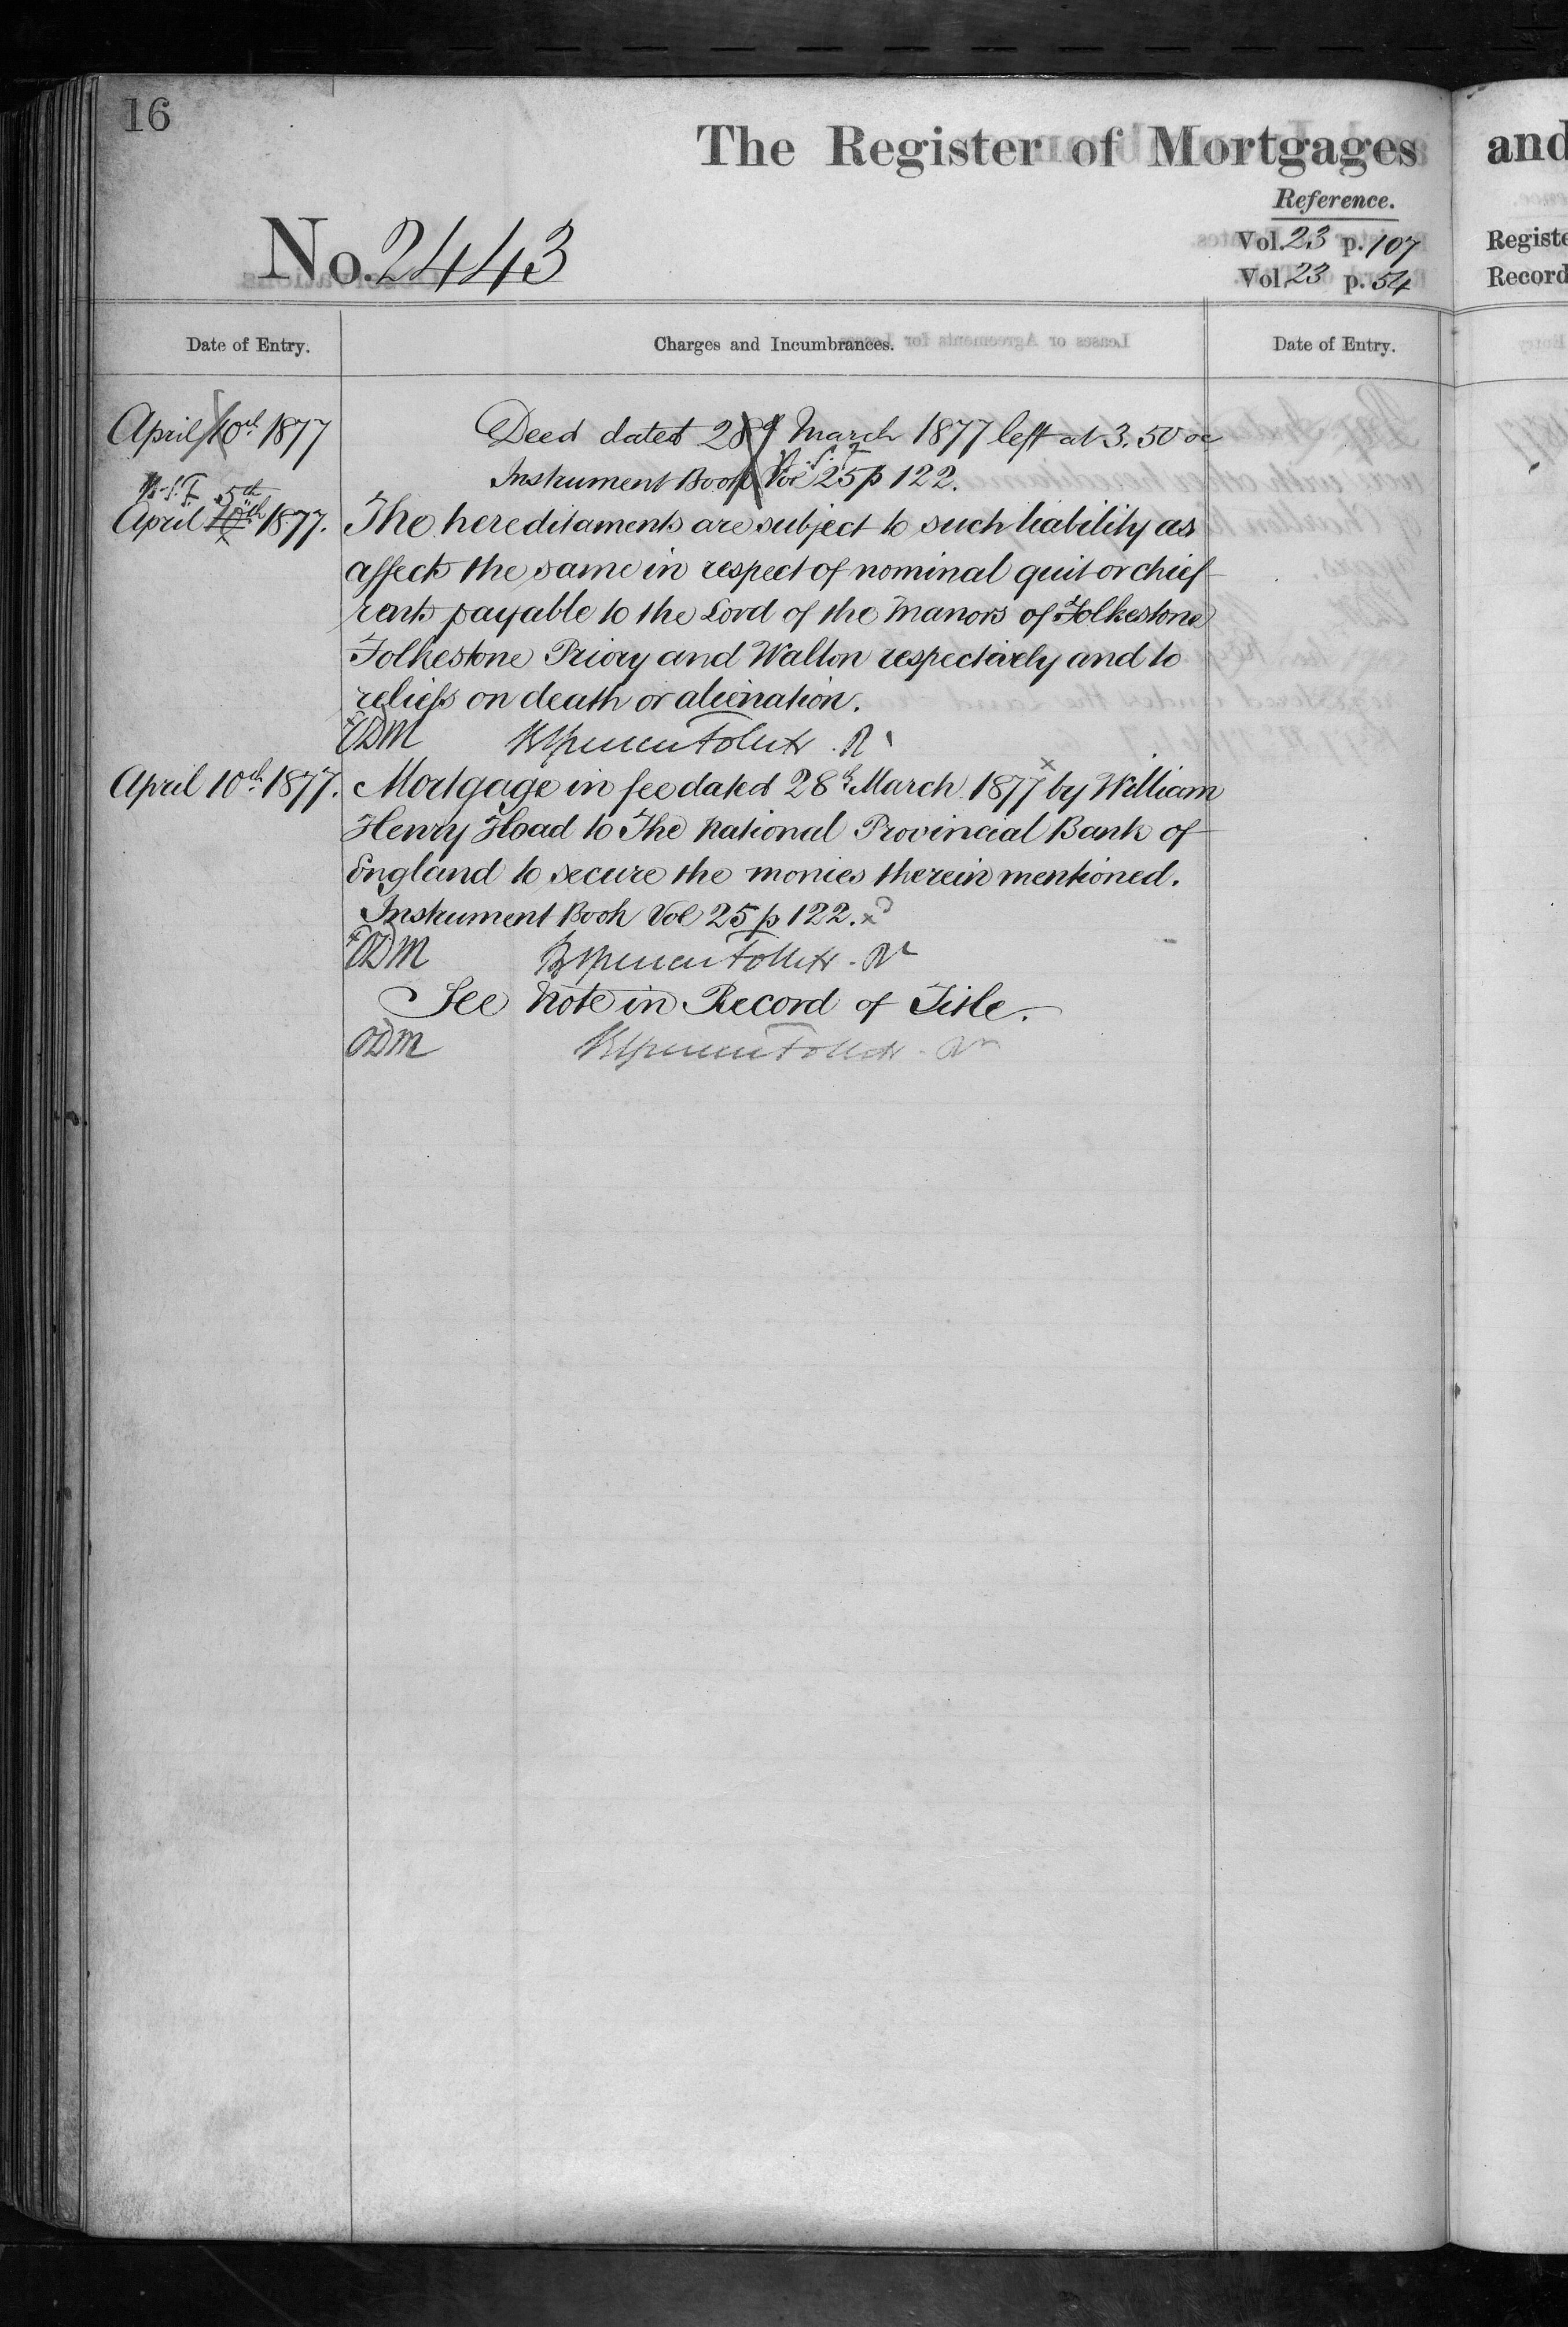 16
The Register of Mortgages
Reference.
No. 2443
Vol. 23 p. 107
Vol. 23 p. 54
Date of Entry.
Charges and Incumbrances.
Date of Entry.
April 10th 1877
Deed dated 28 March 1877 left at 3.50 oc
Instrument Book Vol 25 p 122.
B.S.F. 5th
April 10th 1877.
The hereditaments are subject to such liability as
affects the same in respect of nominal quit or chief
rents payable to the Lord of the Manors of Folkestone
Folkestone Priory and Walton respectively and to
reliefs on death or alienation.
ODM
April 10th 1877.
Mortgage in fee dated 28th March 1877 x by William
Henry Hoad to The National Provincial Bank of
England to secure the monies therein mentioned.
Instrument Book Vol 25 p 122. x
ODM
See Note in Record of Title.
ODM
and
Registe
Record